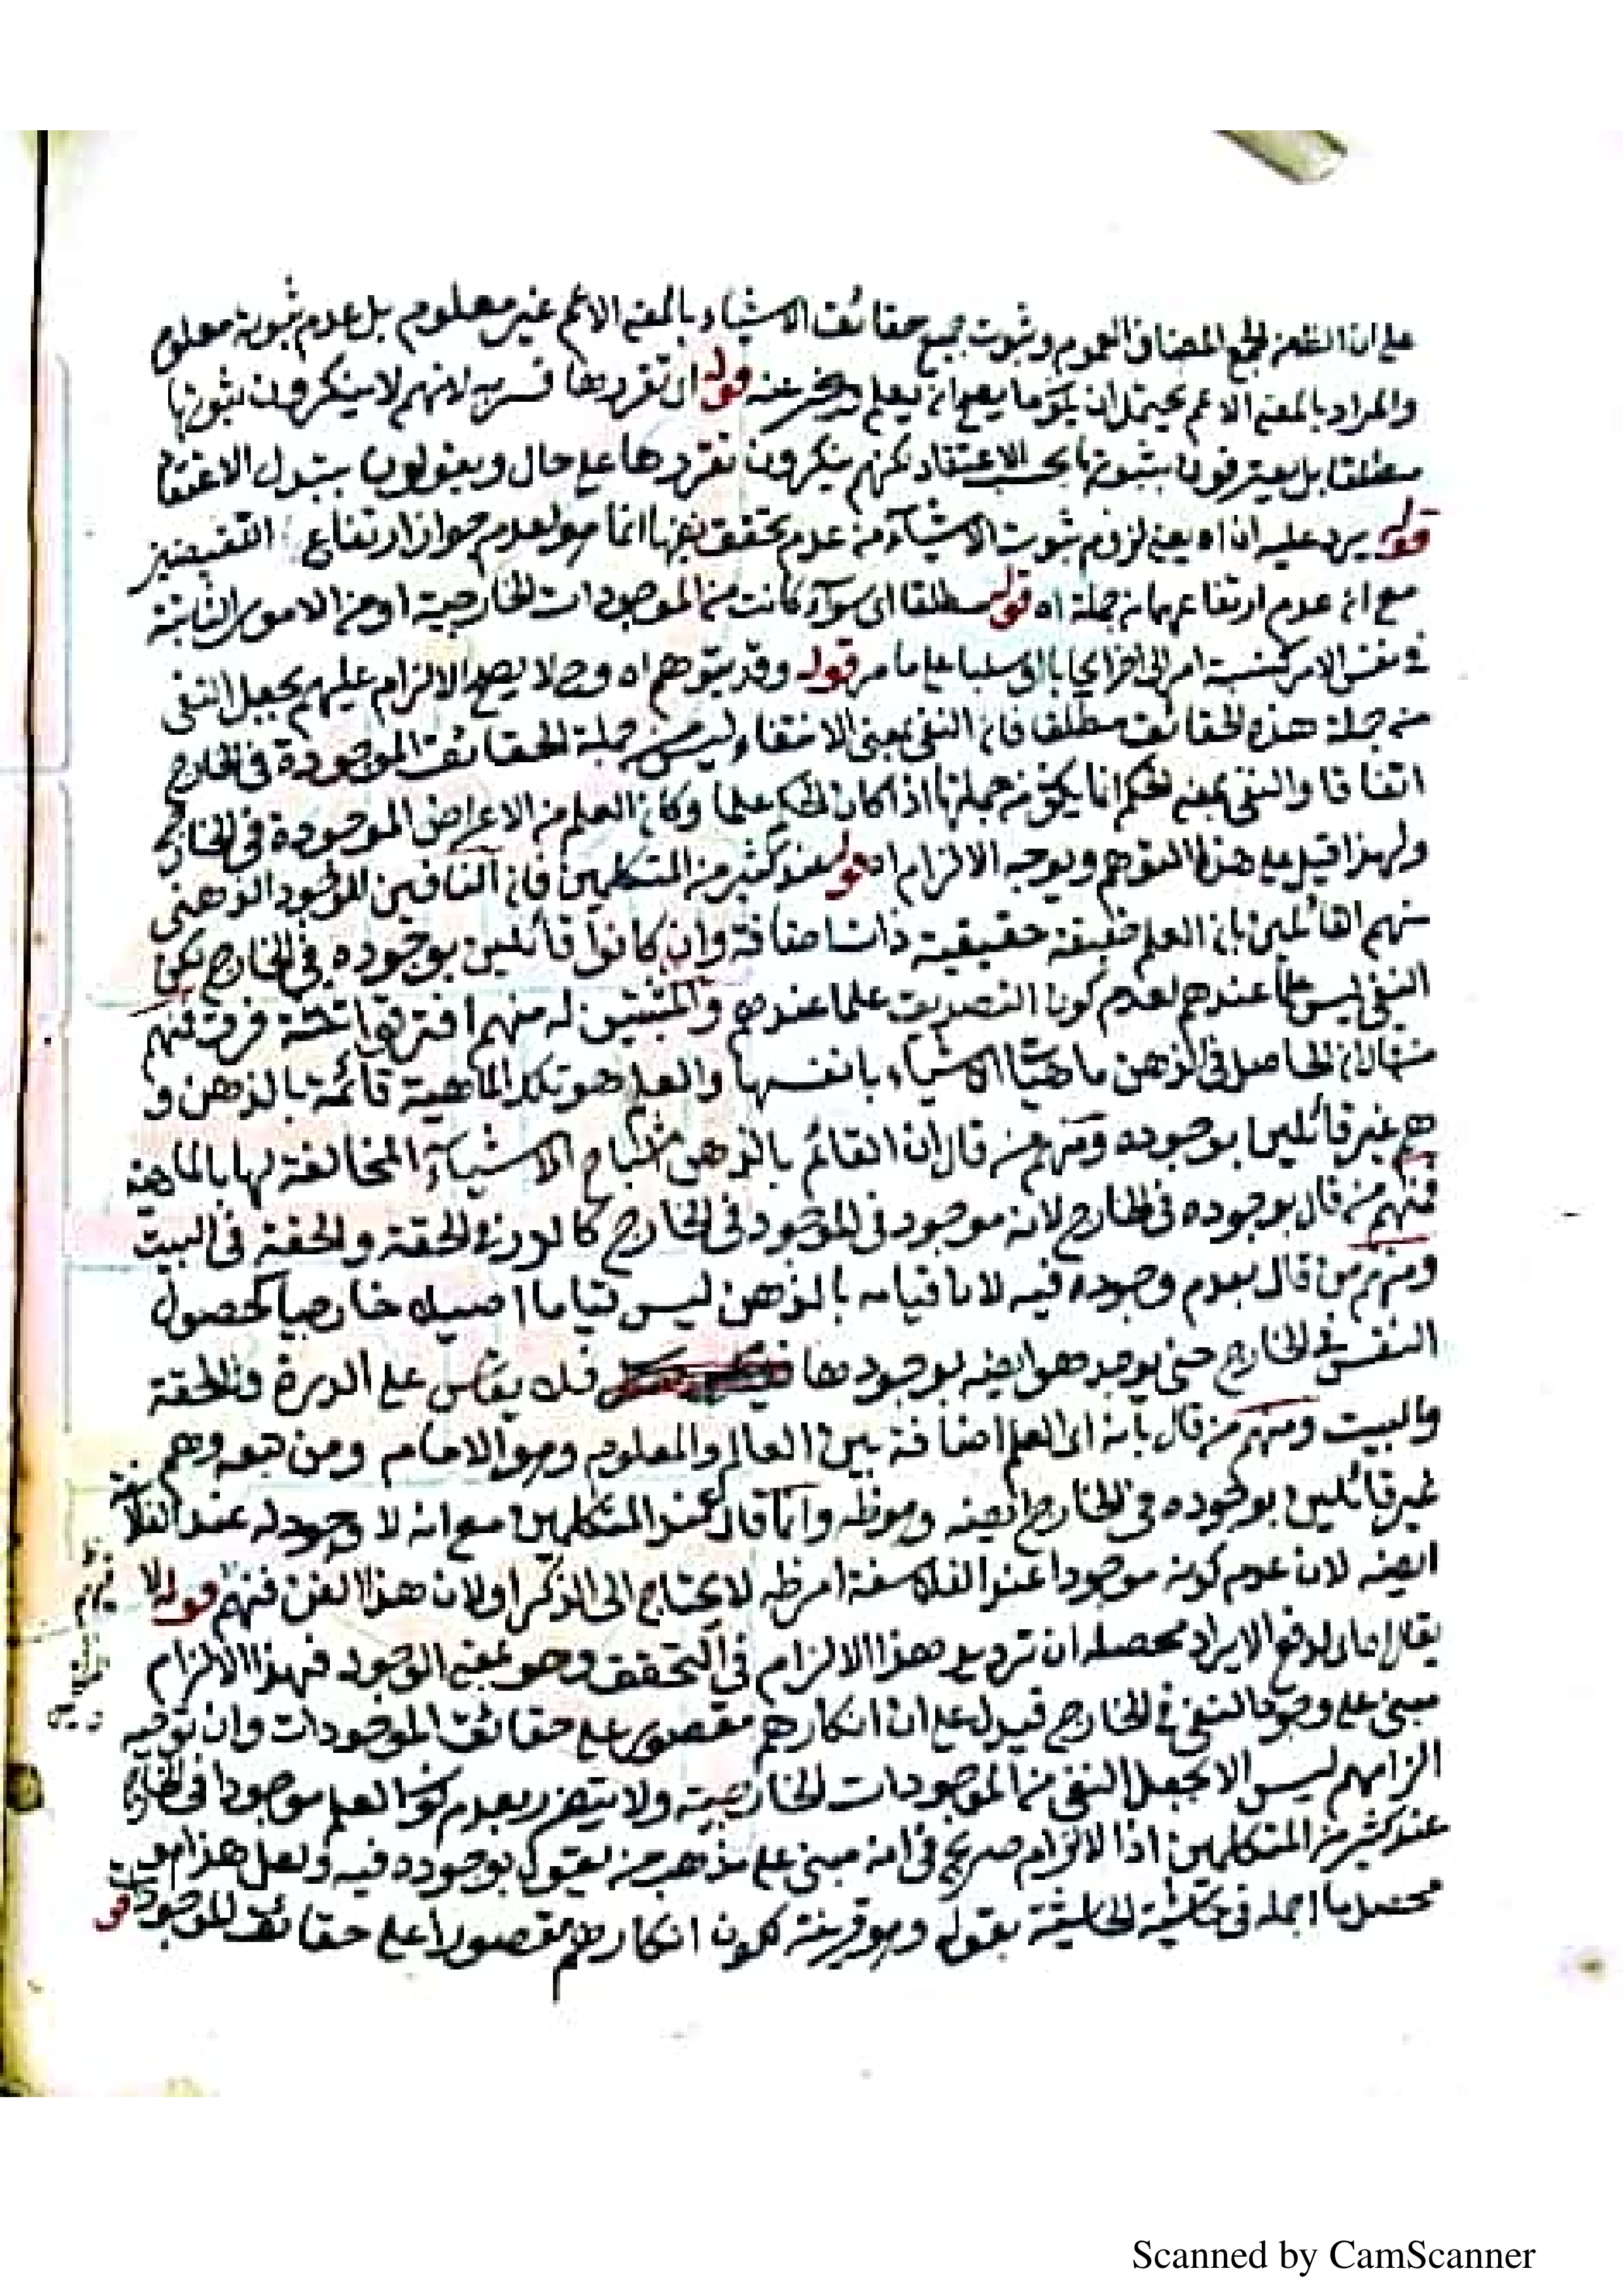 على ان الظاهر الجمع المضاف العموم وثبوت جميع حقائق الاشياء بالمعنى الاعم غير معلوم بل عدم ثبوته معلوم
والمراد بالمعنى الاعم يحتمل ان يكون ما يصح ان يعلم ويخبر عنه قوله اى تقررها فسر به لانهم لا ينكرون ثبوتها
مطلقا بل يعترفون بثبوتها بحسب الاعتقاد لكنهم ينكرون تقررها على حال ويقولون بتبدل الاعتقاد
قوله يرد عليه ان اه يعنى لزوم ثبوت الاشياء من عدم تحقق نفيها انما هو لعدم جواز ارتفاع النقيضين
مع ان عدم ارتفاعهما من جملة اه قوله مطلقا اى سواء كانت من الموجودات الخارجية او من الامور الثابتة
فى نفس الامر كنسبة امر الى اخر ايجابا او سلبا على ما مر قوله وقد يتوهم اه وح لا يصح الالزام عليهم بجعل النفى
من جملة هذه الحقائق مطلقا فان النفى بمعنى الانتفاء ليس من جملة الحقائق الموجودة فى الخارج
اتفاقا والنفى بمعنى الحكم انما يكون من جملتها اذا كان الحكم علما وكان العلم من الاعراض الموجودة فى الخارج
ولهذا قيل على هذا التوهم ويوجه الالزام اه قوله عند كثير من المتكلمين فان النافين للوجود الذهنى
منهم القائلين بان العلم صفة حقيقية ذات اضافة وان كانوا قائلين بوجوده فى الخارج لكن
النفى ليس علما عندهم لعدم كون التصديق علما عندهم والمثبتين له منهم افترقوا ثلثة فرق فمنهم
من قال ان الحاصل فى الذهن ماهيات الاشياء بانفسها والعلم هو تلك الماهية قائمة بالذهن و
هم غير قائلين بوجوده ومنهم من قال ان القائم بالذهن اشباح الاشياء المخالفة لها بالماهية
فمنهم من قال بوجوده فى الخارج لانه موجود فى الموجود فى الخارج كالدرة فى الحقة والحقة فى البيت
ومنهم من قال بعدم وجوده فيه لان قيامه بالذهن ليس قياما اصيلا خارجيا كحصول
النفس فى الخارج حتى يوجد هو ايضا بوجودها فلا يقاس على الدرة فى الحقة
والبيت ومنهم من قال بانه اى العلم اضافة بين العالم والمعلوم وهو الامام ومن تبعه وهم
غير قائلين بوجوده فى الخارج ايضا وهو ظه وانما قال عند المتكلمين مع انه لا وجود له عند الفلاسفة
ايضا لان عدم كونه موجودا عند الفلاسفة امر ظه لا يحتاج الى الذكر او لان هذا الفن فنهم قوله لا
يقال اه اى لدفع الايراد محصله ان ترديد هذا الالزام فى التحقق وهو بمعنى الوجود فهذا الالزام
مبنى على وجود النفى فى الخارج فيدل على ان انكارهم مقصور على حقائق الموجودات وان توجيه
الزامهم ليس الا بجعل النفى من الموجودات الخارجية ولا يتضرر بعدم كون العلم موجودا فى الخارج
عند كثير من المتكلمين اذا الالزام صريح فى انه مبنى على مذهب من يقول بوجوده فيه ولعل هذا هو
محتمل ما اجمله فى حاشية الحاشية بقوله وهو قرينة لكون انكارهم مقصورا على حقائق الموجودات قو
Scanned by CamScanner